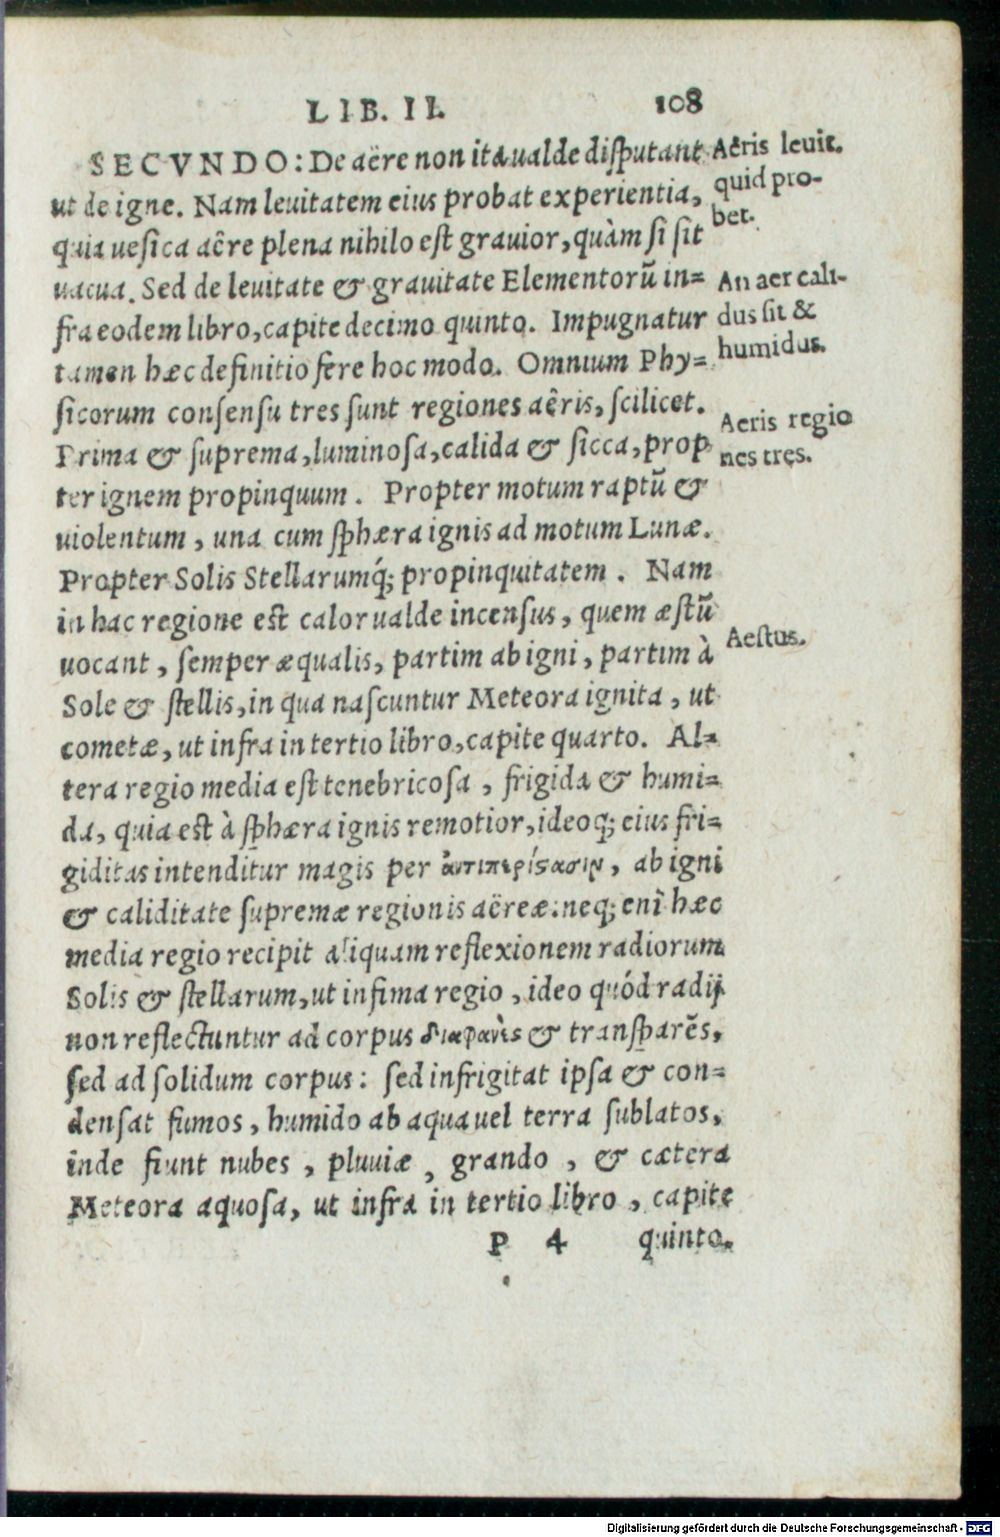 LIB. II.
108
SECVNDO: De aëre non ita ualde disputant
ut de igne. Nam leuitatem eius probat experientia,
quia uesica aëre plena nihilo est grauior, quàm si sit
uacua. Sed de leuitate & grauitate Elementorũ in=
fra eodem libro, capite decimo quinto. Impugnatur
tamen hæc definitio fere hoc modo. Omnium Phy=
sicorum consensu tres sunt regiones aëris, scilicet.
Prima & suprema, luminosa, calida & sicca, prop
ter ignem propinquum. Propter motum raptũ &
uiolentum, una cum sphæra ignis ad motum Lunæ.
Propter Solis Stellarumq́; propinquitatem. Nam
in hac regione est calor ualde incensus, quem æstũ
uocant, semper æqualis, partim ab igni, partim à
Sole & stellis, in qua nascuntur Meteora ignita, ut
cometæ, ut infra in tertio libro, capite quarto. Al=
tera regio media est tenebricosa, frigida & humi=
da, quia est à sphæra ignis remotior, ideoq; eius fri=
giditas intenditur magis per ἀντιπερίςασιν, ab igni
& caliditate supremæ regionis aëreæ: neq; enĩ hæc
media regio recipit aliquam reflexionem radiorum
Solis & stellarum, ut infima regio, ideo quód radij
non reflectuntur ad corpus διαφανὲς & transparẽs,
sed ad solidum corpus: sed infrigitat ipsa & con=
densat fumos, humido ab aqua uel terra sublatos,
inde fiunt nubes, pluuiæ, grando, & cætera
Meteora aquosa, ut infra in tertio libro, capite
P 4 quinto.
Aëris leuit.
quid pro-
bet.
An aer cali-
dus sit &
humidus.
Aeris regio
nes tres.
Aestus.
Digitalisierung gefördert durch die Deutsche Forschungsgemeinschaft - DFG